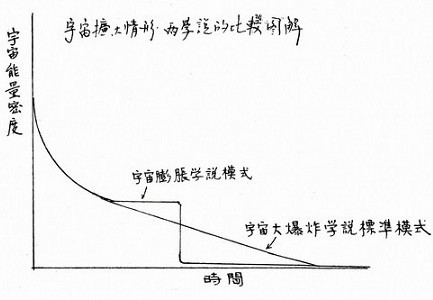 宇宙擴大情形·两学說的比較図解
宇宙能量密度
宇宙膨脹学說模式
宇宙大爆炸学說標準模式
時間